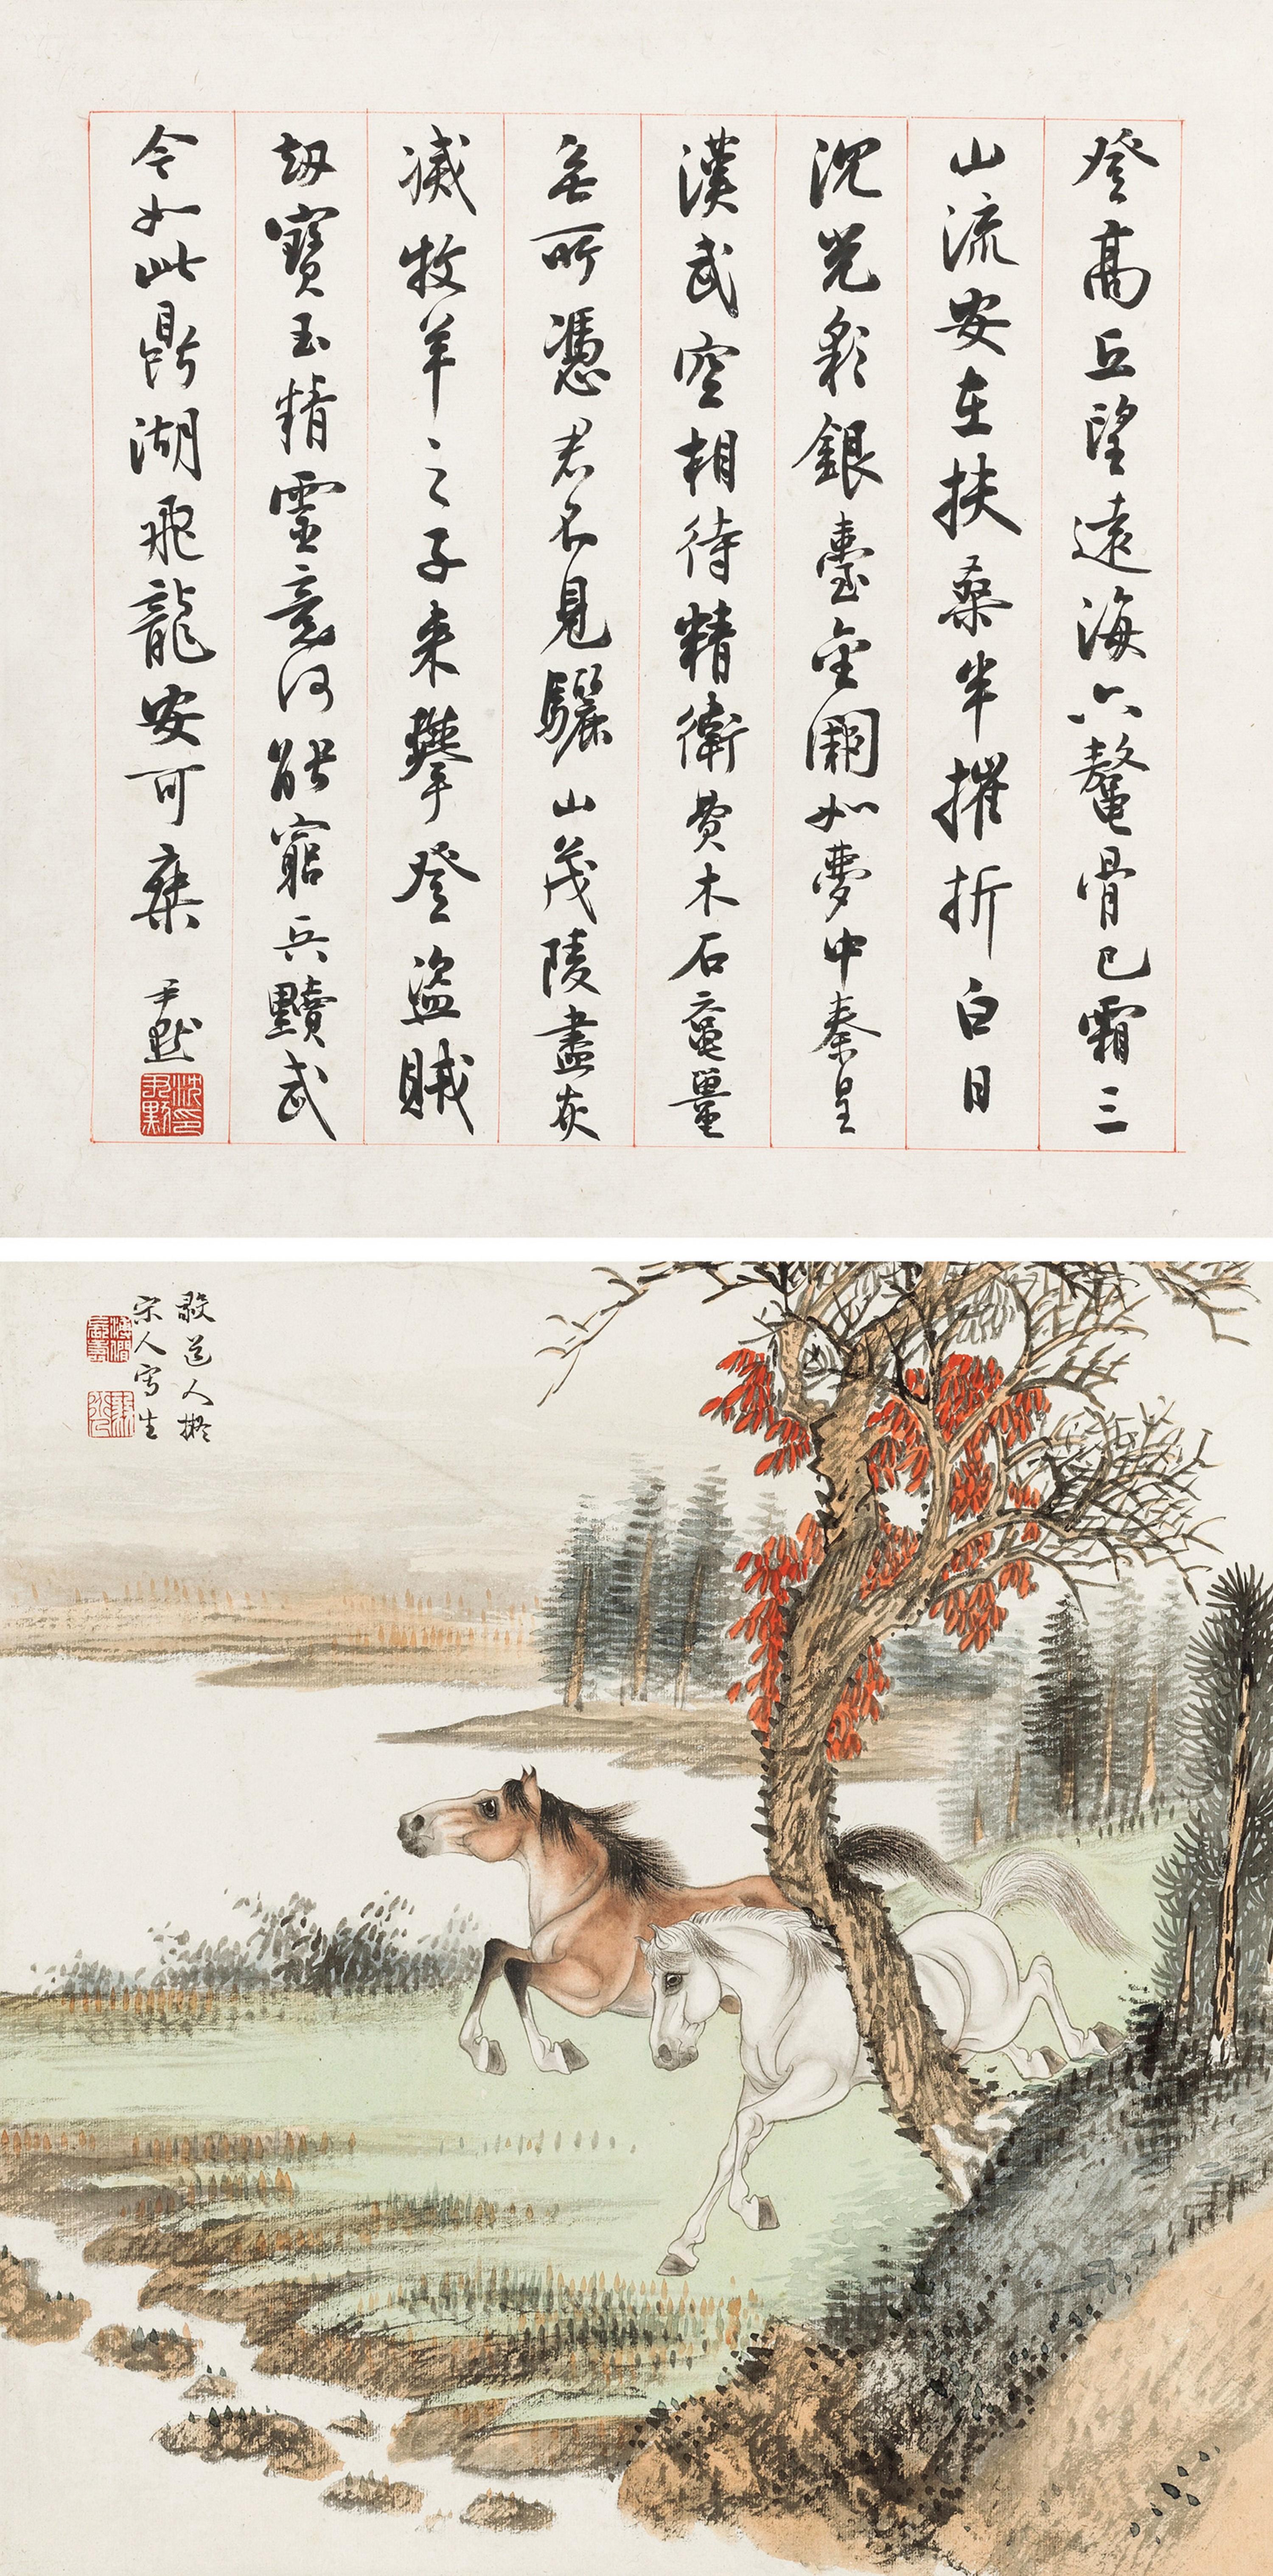 登高丘望遠海六鰲骨已霜三
山流安在扶桑半摧折白日
沈光彩銀臺金闕如夢中秦皇
漢武空相待精衛費木石黿鼉
無所憑君不見驪山茂陵盡灰
滅牧羊之子來攀登盜賊
劫寶玉精靈竟何能窮兵黷武
今如此鼎湖飛龍安可乘 尹默
沈尹默印
道人擬
宋人寫生